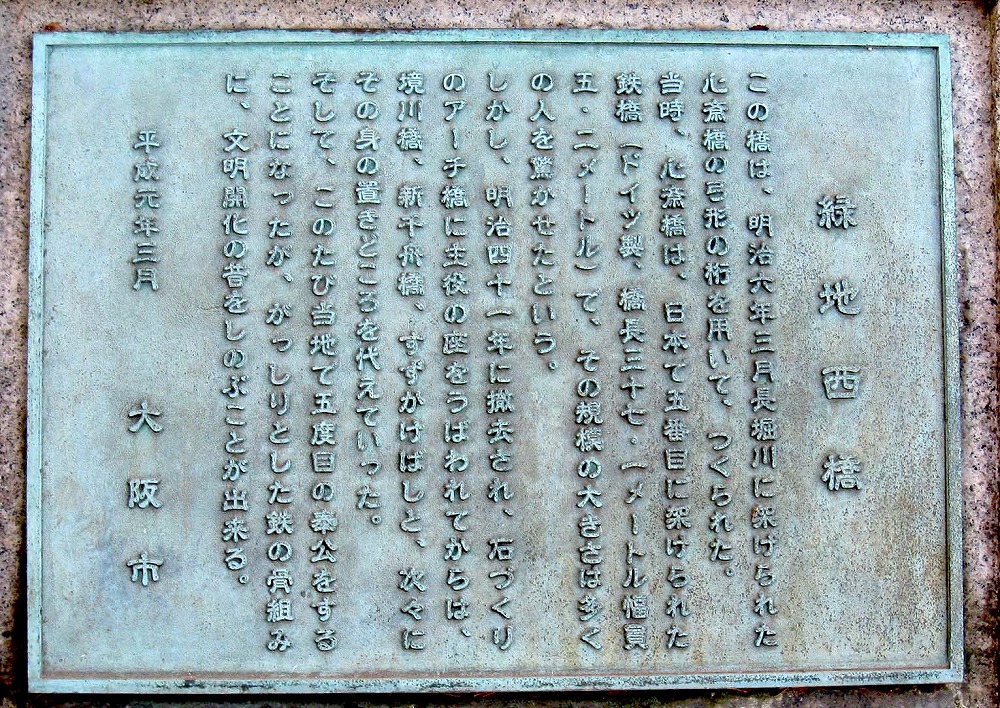 緑地西橋
この橋は、明治六年三月長堀川に架けられた
心斎橋の弓形の桁を用いて、つくられた。
当時、心斎橋は、日本で五番目に架けられた
鉄橋（ドイツ製、橋長三十七・一メートル幅員
五・二メートル）で、その規模の大きさは多く
の人を驚かせたという。
しかし、明治四十一年に撤去され、石づくり
のアーチ橋に主役の座をうばわれてからは、
境川橋、新千舟橋、すずかけばしと、次々に
その身の置きどころを代えていった。
そして、このたび当地で五度目の奉公をする
ことになったが、がっしりとした鉄の骨組み
に、文明開化の昔をしのぶことが出来る。
平成元年三月
大阪市